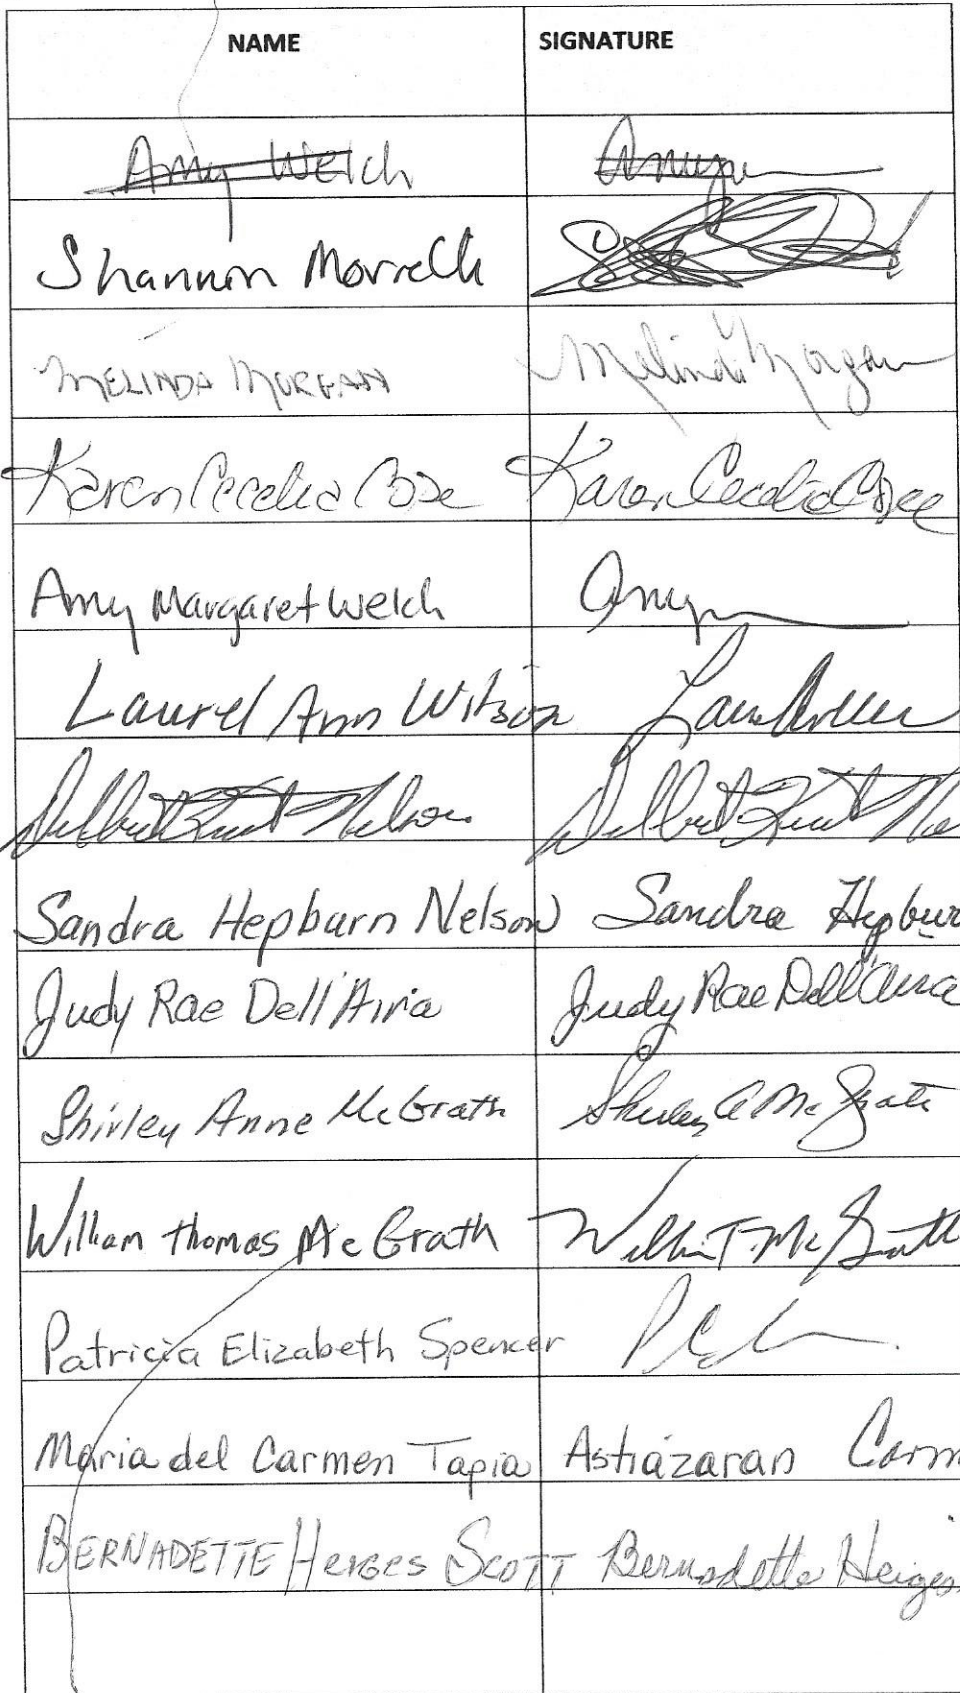 NAME SIGNATURE
Amy Welch Amy
Shannon Morrell
MELINDA MORGAN Melinda Morgan
Karen Cecelia Coze Karen Cecelia Coze
Amy Margaret Welch Amy
Laurel Ann Wilson
Delbert Kent Nelson Delbert Kent Ne
Sandra Hepburn Nelson Sandra Hepbur
Judy Rae Dell'Aira Judy Rae Dell'Aira
Shirley Anne McGrath Shirley A McGrath
William thomas McGrath William T. McGrath
Patricia Elizabeth Spencer
Maria del Carmen Tapia Astiazaran Carm
BERNADETTE Herges SCOTT Bernadette Herges